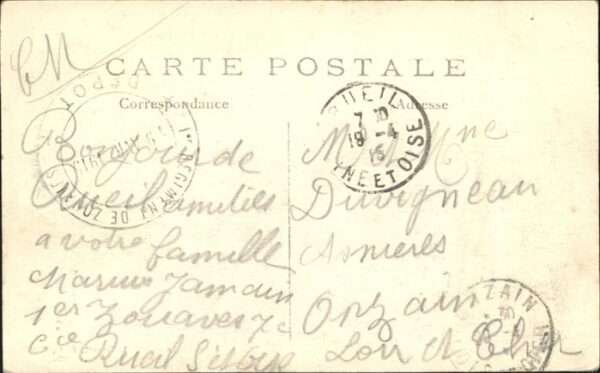 FM
CARTE POSTALE
Correspondance
Adresse
RUEIL
7 30
18 -4
15
NE ET OISE
1er REGIMENT DE ZOUAVES
DEPOT
Bonjour de
Rueil amitiés
a votre famille
Marius Jamain
1er Zouaves 7e
Cie Rueil S et Oise
M. Mme
Duvigneau
Asnieres
Onzain
Loir et Cher
ZAIN